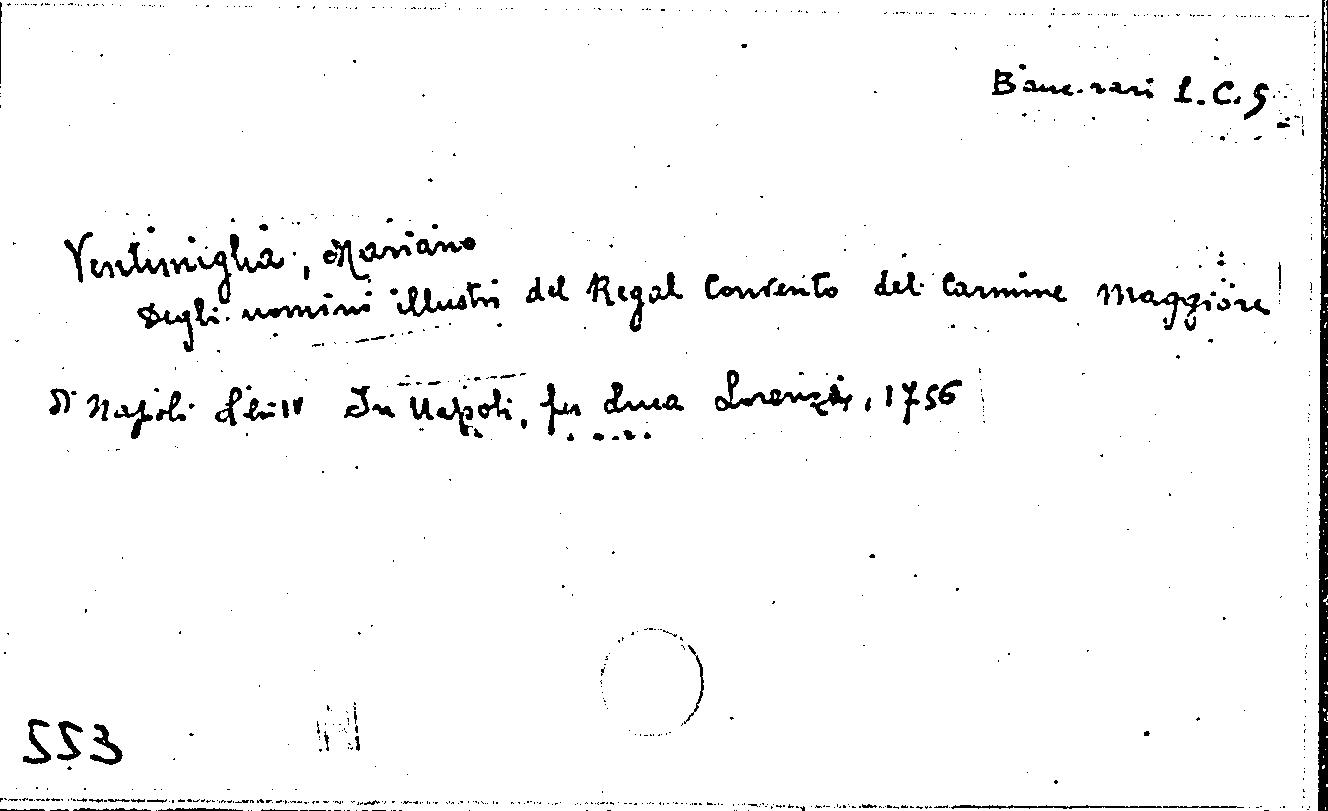 Banc. rari 1.C.5
Ventimiglia, Mariano
Degli uomini illustri del Regal Convento del Carmine Maggiore
di Napoli In Napoli, per Luca Lorenzi, 1756
553